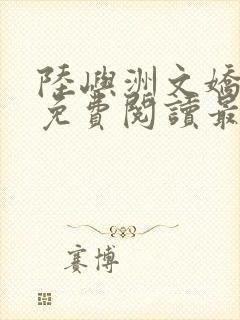 陸嶼洲文嬌
免費閱讀最
賽博